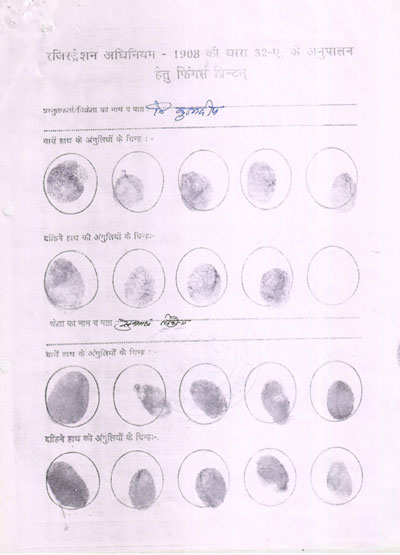 रजिस्ट्रेशन अधिनियम - 1908 की धारा 32-ए, के अनुपालन
हेतु फिंगर्स प्रिन्टस्
प्रस्तुतकर्ता/विक्रेता का नाम व पता
बायें हाथ के अंगुलियों के चिन्ह : -
दाहिने हाथ की अंगुलियों के चिन्हः-
क्रेता का नाम व पता
बायें हाथ के अंगुलियों के चिन्ह : -
दाहिने हाथ की अंगुलियों के चिन्हः-